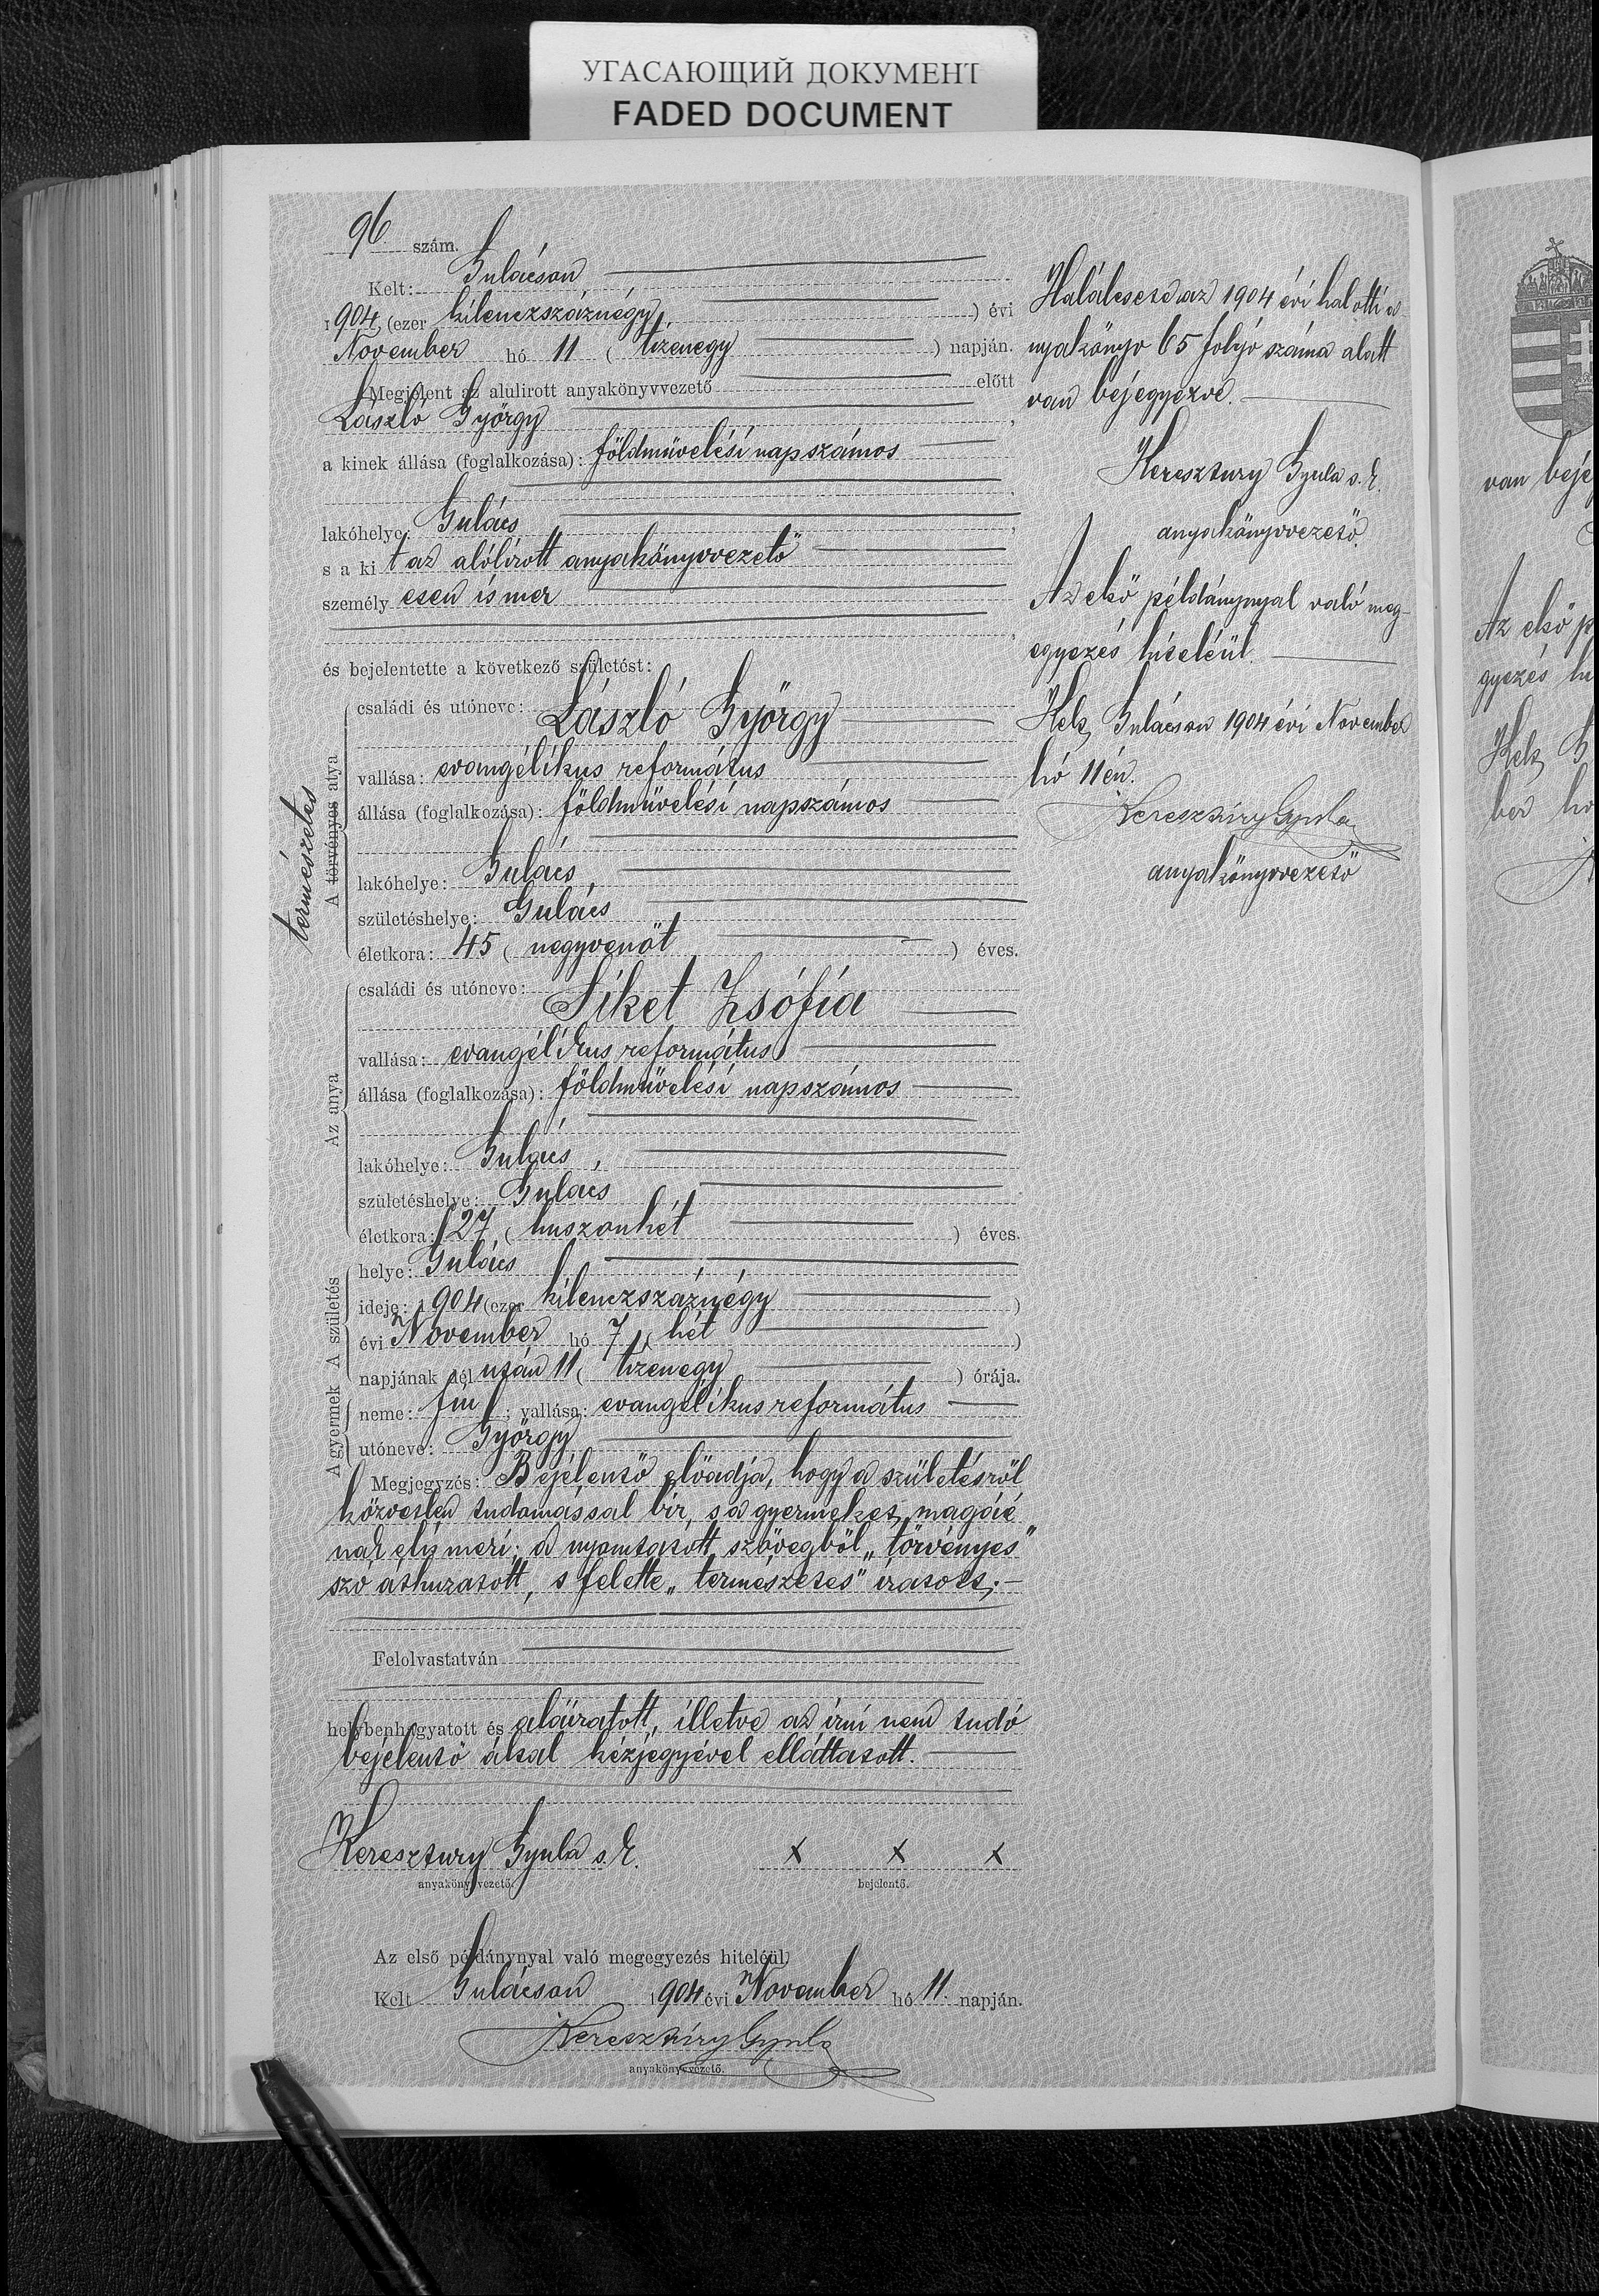 УГАСАЮЩИЙ ДОКУМЕНТ
FADED DOCUMENT
96 szám.
Kelt: Gulácson
1904 (ezer kilenczszáznégy) évi
November hó 11 (tizenegy) napján.
Megjelent az alulirott anyakönyvvezető előtt
László György,
a kinek állása (foglalkozása): földmüvelési napszámos
lakóhelye: Gulács,
s a kit az alólirott anyakönyvvezető
személyesen ismer,
és bejelentette a következő születést:
természetes
A törvényes atya
családi és utóneve: László György
vallása: evangélikus református
állása (foglalkozása): földmüvelési napszámos
lakóhelye: Gulács,
születéshelye: Gulács
életkora: 45 (negyvenöt) éves.
Az anya
családi és utóneve: Siket Zsófia
vallása: evangélikus református
állása (foglalkozása): földmüvelési napszámos
lakóhelye: Gulács,
születéshelye: Gulács
életkora: 27 (huszonhét) éves.
A születés
helye: Gulács
ideje: 1904 (ezer kilenczszáznégy)
évi November hó 7 (hét)
napjának dél után 11 (tizenegy) órája.
A gyermek
neme: fiu; vallása: evangélikus református
utóneve: György
Megjegyzés: Bejelentő előadja, hogy a születésről
közvetlen tudomással bir, s a gyermeket magáé
nak elismeri; a nyomtatott szövegből „törvényes"
szó áthuzatott, s felette „természetes" iratott.
Felolvastatván
helybenhagyatott és aláiratott, illetve az irni nem tudó
bejelentő által kézjegyével elláttatott.
Keresztury Gyula s. k. x x x
anyakönyvvezető. bejelentő.
Az első példánynyal való megegyezés hiteléül
Kelt Gulácson 1904 évi November hó 11. napján.
Keresztúry Gyula
anyakönyvvezető.
Haláleset az 1904 évi halotti a
nyakönyv 65 folyó száma alatt
van bejegyezve.
Keresztury Gyula s. k.
anyakönyvvezető.
Az első példánynyal való meg-
egyezés hiteléül.
Kelt, Gulácson 1904 évi November
hó 11én.
Keresztúry Gyula
anyakönyvvezető
van beje
Az első p
gyezés hi
Kelt, G
ber hó